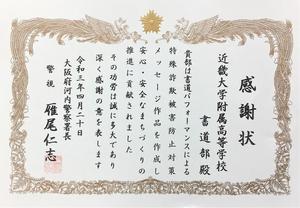 感謝状
近畿大学附属高等学校
書道部殿
貴部は書道パフォーマンスによる
特殊詐欺被害防止対策
メッセージ作品を作成し
安心・安全なまちづくりの
推進に貢献されました
その功労は誠に多大であり
深く感謝の意を表します
令和三年四月二十日
大阪府河内警察署長
警視 雁尾仁志